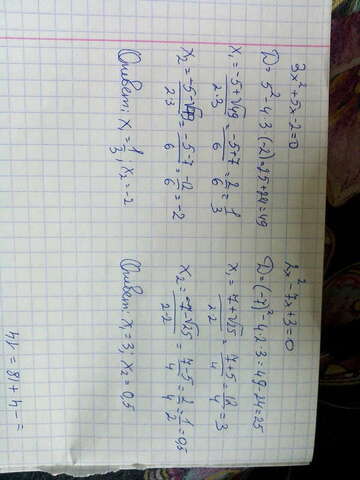 3x²+5x-2=0
D=5²-4·3·(-2)=25+24=49
x₁=(-5+√49)/(2·3)=(-5+7)/6=2/6=1/3
x₂=(-5-√49)/(2·3)=(-5-7)/6=-12/6=-2
Ответ: x₁=1/3; x₂=-2
2x²-7x+3=0
D=(-7)²-4·2·3=49-24=25
x₁=(7+√25)/(2·2)=(7+5)/4=12/4=3
x₂=(7-√25)/(2·2)=(7-5)/4=2/4=1/2=0,5
Ответ: x₁=3; x₂=0,5